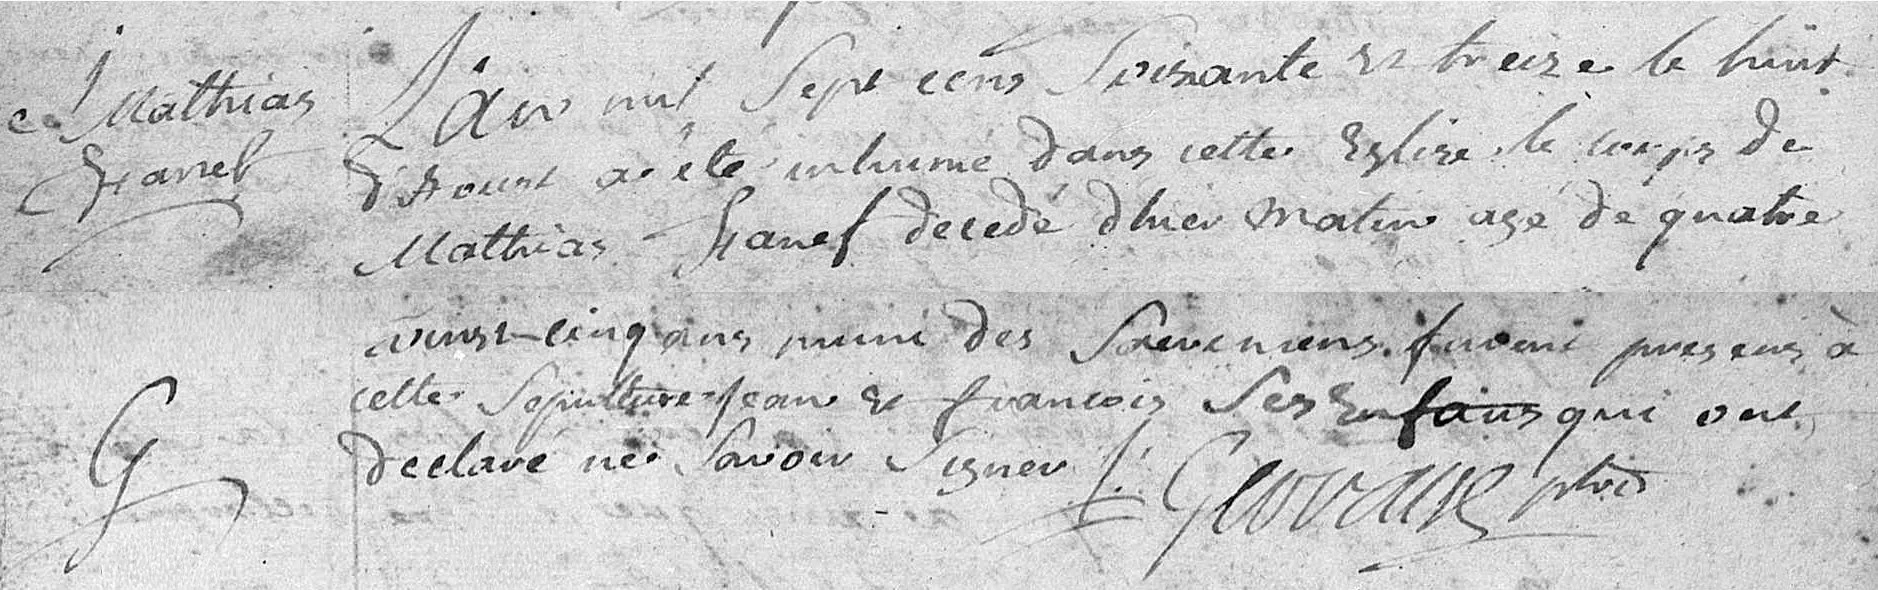 Mathias
L'an mil sept cens soixante et treize le huit
d'Aoust a été inhumé dans cette Eglise le corps de
Mathias decedé d'hier matin agé de quatre
vingt-cinq ans muni des Sacremens. furent presens à
cette Sepulture Jean et francois Ses Enfans qui ont
declaré ne Savoir Signer
G